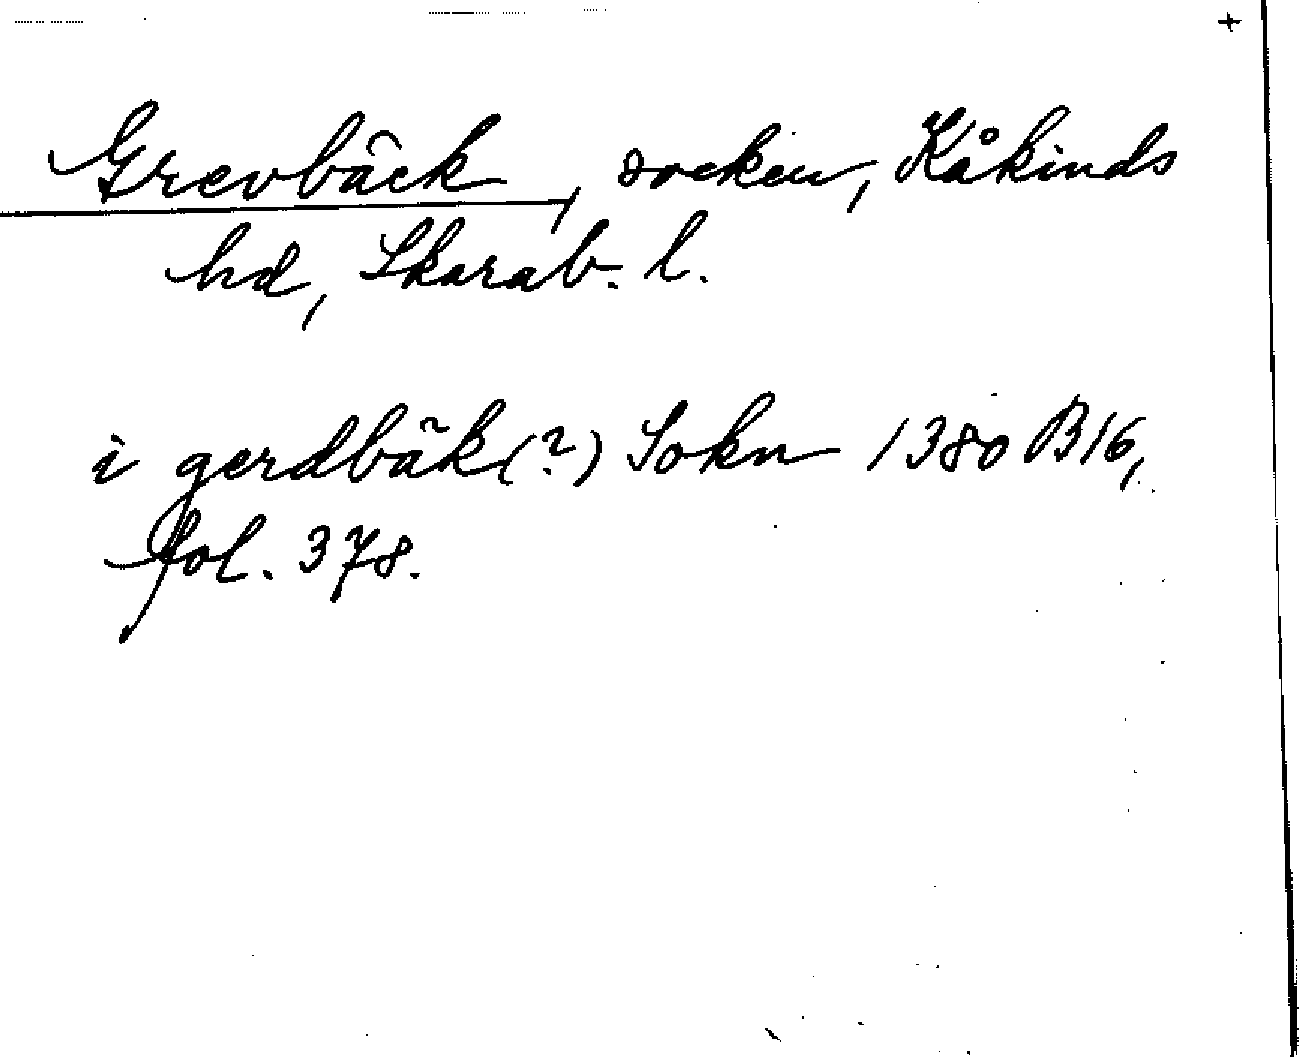 Grevbäck, socken, Kåkinds
hd, Skarab. l.
i gerdbäk(?) Sokn 1380 B16,
fol. 378.